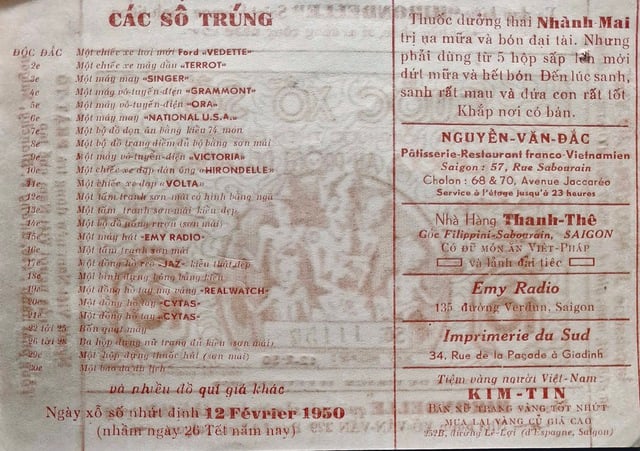 CÁC SỐ TRÚNG
ĐỘC ĐẮC Một chiếc xe hơi mới Ford «VEDETTE»
2e Một chiếc xe máy dầu «TERROT»
3e Một máy may «SINGER»
4e Một máy vô-tuyến-điện «GRAMMONT»
5e Một máy vô-tuyến-điện «ORA»
6e Một máy may «NATIONAL U.S.A.»
7e Một bộ đồ dọn ăn bằng kiền 74 món
8e Một bộ đồ trang điểm đủ bộ bằng sơn mài
9e Một máy vô-tuyến-điện «VICTORIA»
10e Một chiếc xe đạp đàn ông «HIRONDELLE»
11e Một chiếc xe đạp «VOLTA»
12e Một tấm tranh sơn mài có hình bằng ngà
13e Một tấm tranh sơn mài kiểu đẹp
14e Một bộ đồ uống rượu (sơn mài)
15e Một máy hát «EMY RADIO»
16e Một tấm tranh sơn mài
17e Một đồng hồ reo «JAZ» kiểu thật đẹp
18e Một bình đựng bông bằng kiền
19e Một đồng hồ tay mạ vàng «REALWATCH»
20e Một đồng hồ tay «CYTAS»
21e Một đồng hồ tay «CYTAS»
22 tới 25 Bốn quạt máy
26 tới 28 Ba hộp đựng nữ trang đủ kiểu (sơn mài)
29e Một hộp đựng thuốc hút (sơn mài)
30e Một bao da du lịch
và nhiều đồ quí giá khác
Ngày xổ số nhứt định 12 Février 1950
(nhằm ngày 26 Tết năm nay)
Thuốc dưỡng thai Nhành Mai
trị ụa mữa và bón đại tài. Nhưng
phải dùng từ 5 hộp sắp lên mới
dứt mữa và hết bón Đến lúc sanh,
sanh rất mau và đứa con rất tốt
Khắp nơi có bán.
NGUYỄN-VĂN-ĐẮC
Pâtisserie-Restaurant franco-Vietnamien
Saigon : 57, Rue Sabourain
Cholon : 68 & 70, Avenue Jaccaréo
Service à l'étage jusqu'à 23 heures
Nhà Hàng Thanh-Thế
Góc Filippini-Sabourain, SAIGON
CÓ ĐỦ MÓN ĂN VIỆT-PHÁP
và lãnh đãi tiệc
Emy Radio
135 đường Verdun, Saigon
Imprimerie du Sud
34, Rue de la Paçade à Giadinh
Tiệm vàng người Việt-Nam
KIM-TIN
BÁN NỮ TRANG VÀNG TỐT NHỨT
MUA LẠI VÀNG CŨ GIÁ CAO
152B, đường Lê-Lợi (d'Espagne, Saigon)